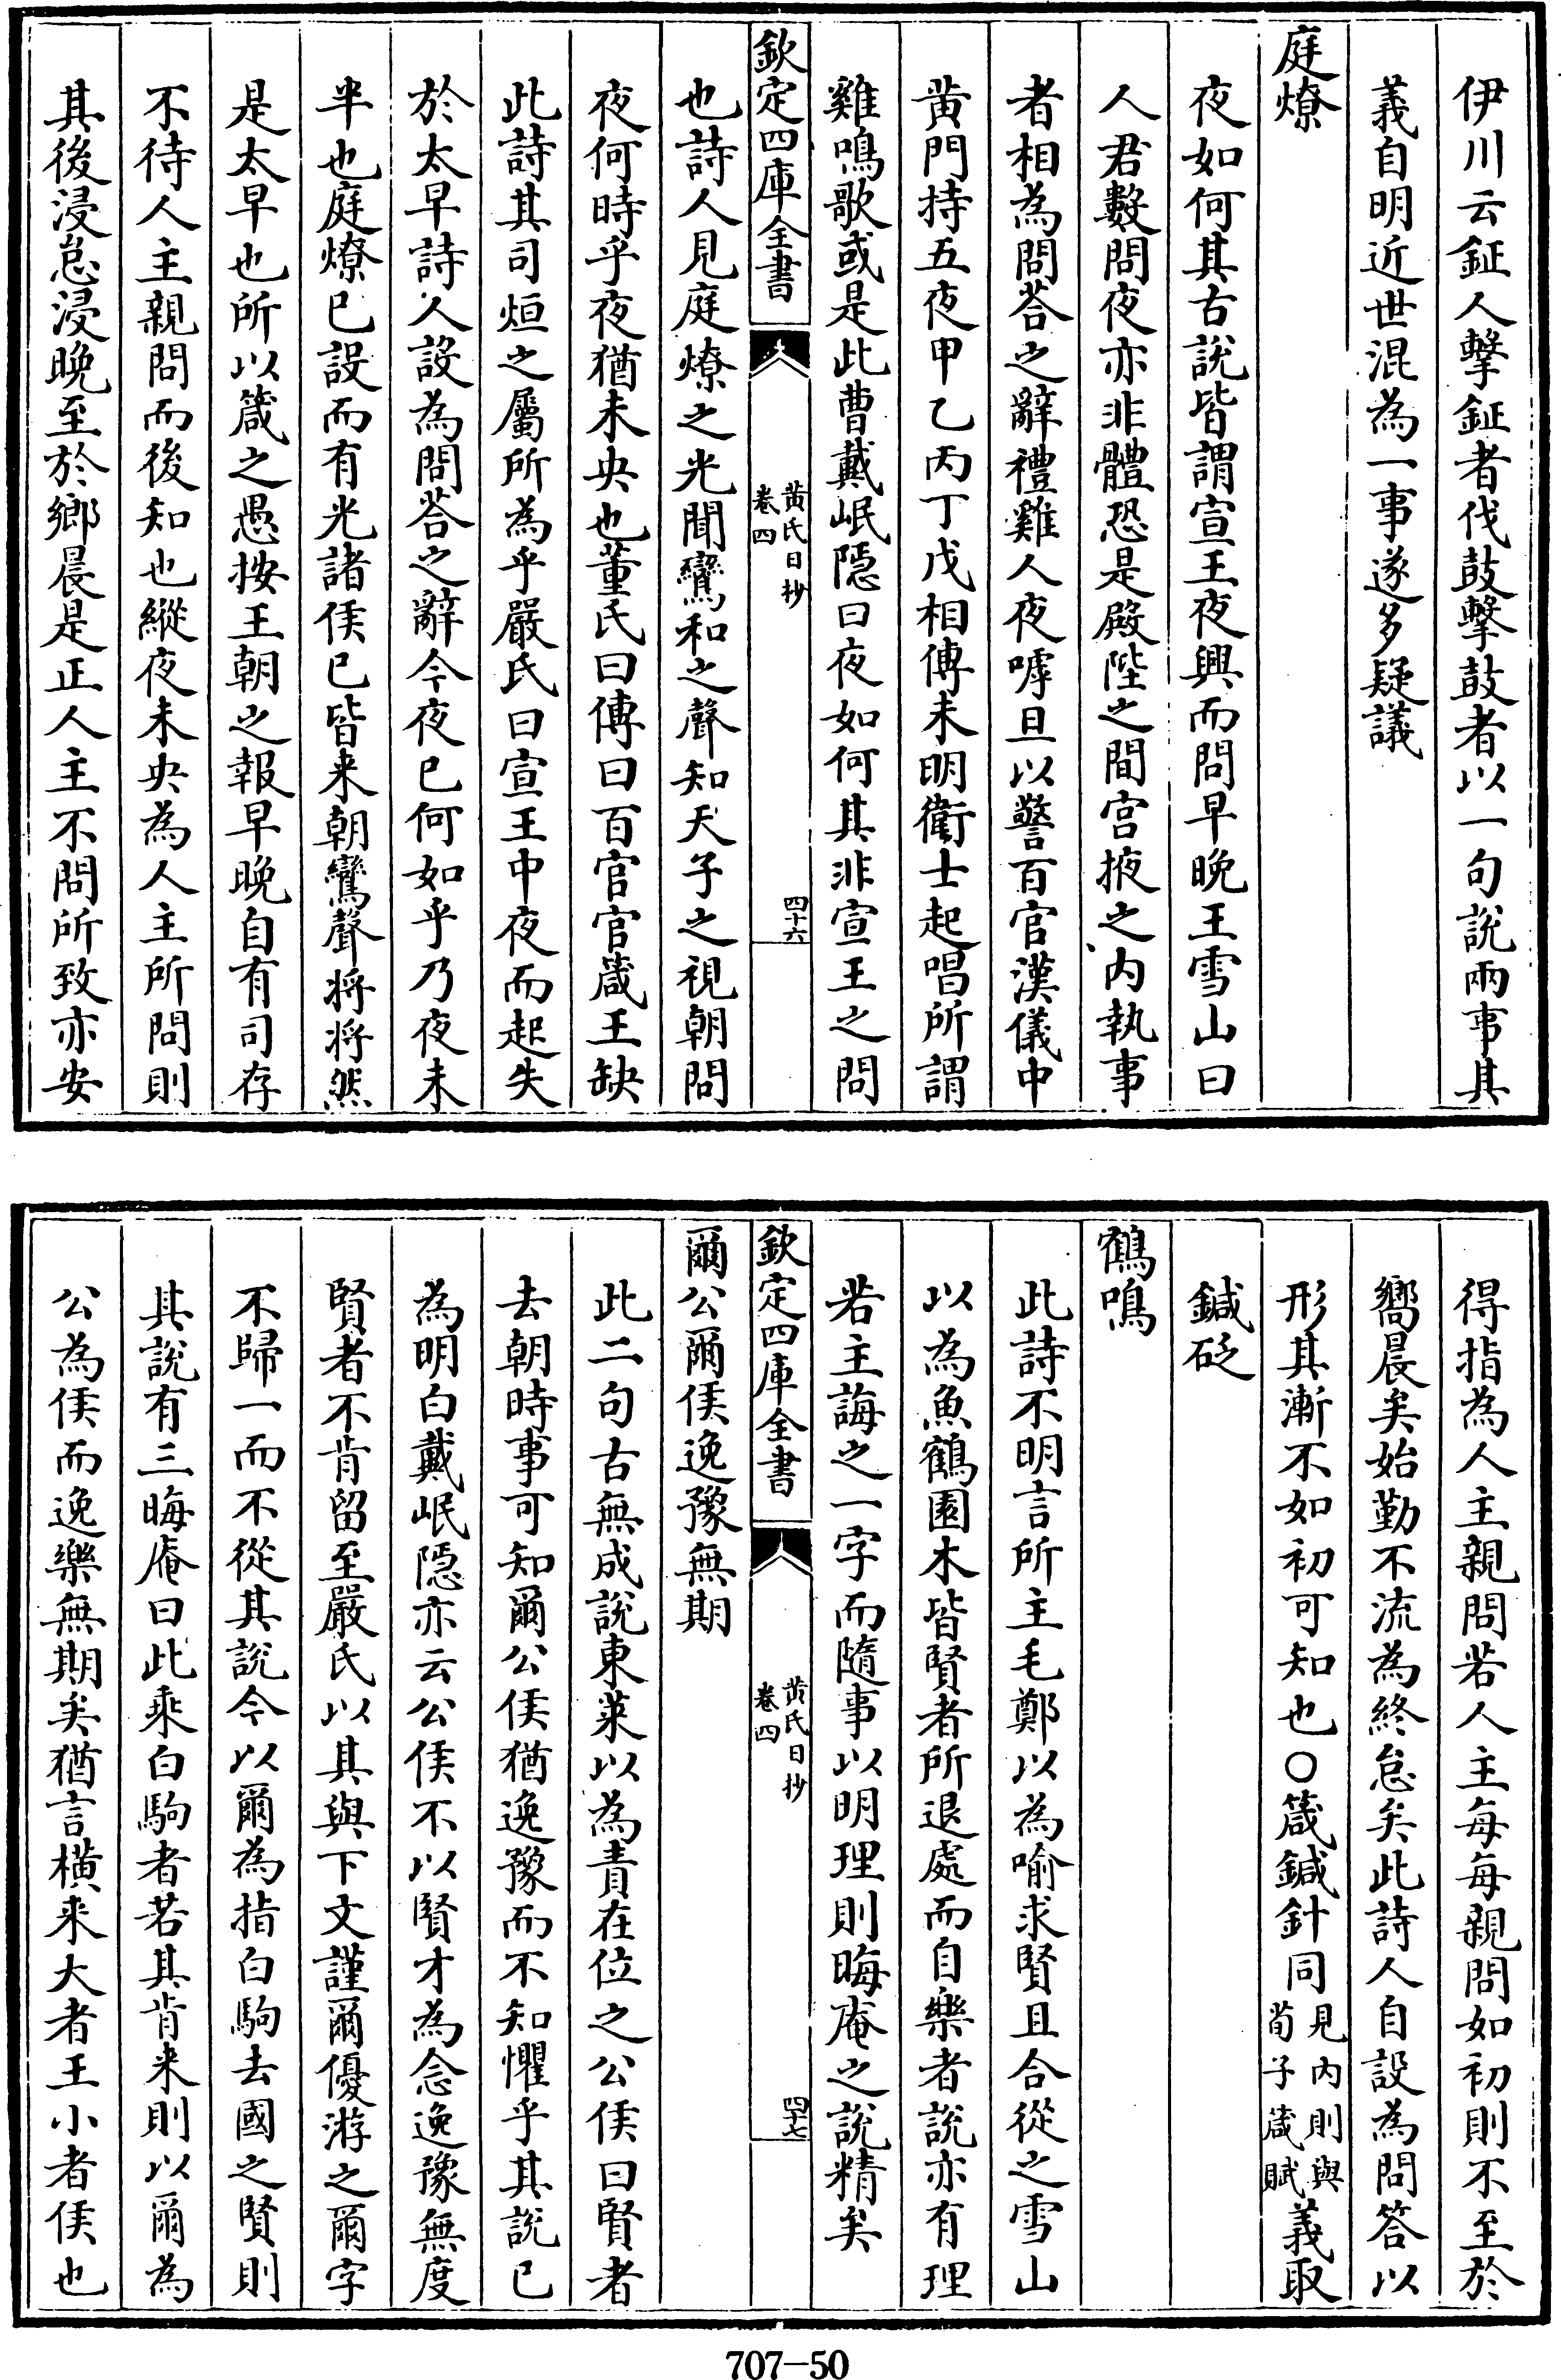 伊川云鉦人擊鉦者伐鼓擊鼓者以一句說兩事其
義自明近世混為一事遂多疑議
庭燎
夜如何其古說皆謂宣王夜興而問早晚王雪山曰
人君數問夜亦非體恐是殿陛之間宮掖之內執事
者相為問荅之辭禮雞人夜嘑旦以警百官漢儀中
黃門持五夜甲乙丙丁戊相傳未明衛士起唱所謂
雞鳴歌或是此曹戴岷隱曰夜如何其非宣王之問
欽定四庫全書
黃氏日抄
卷四
四十六
也詩人見庭燎之光聞鸞和之聲知天子之視朝問
夜何時乎夜猶未央也董氏曰傳曰百官官箴王缺
此詩其司烜之屬所為乎嚴氏曰宣王中夜而起失
於太早詩人設為問荅之辭今夜已何如乎乃夜未
半也庭燎已設而有光諸侯已皆来朝鸞聲將將然
是太早也所以箴之愚按王朝之報早晚自有司存
不待人主親問而後知也縱夜未央為人主所問則
其後浸怠浸晚至於鄉晨是正人主不問所致亦安
得指為人主親問若人主每每親問如初則不至於
嚮晨矣始勤不流為終怠矣此詩人自設為問答以
形其漸不如初可知也○箴鍼針同見內則與荀子箴賦義取
鍼砭
鶴鳴
此詩不明言所主毛鄭以為喻求賢且合從之雪山
以為魚鶴園木皆賢者所退處而自樂者說亦有理
若主誨之一字而隨事以明理則晦庵之說精矣
欽定四庫全書
黃氏日抄
卷四
四十七
爾公爾侯逸豫無期
此二句古無成說東萊以為責在位之公侯曰賢者
去朝時事可知爾公侯猶逸豫而不知懼乎其說已
為明白戴岷隱亦云公侯不以賢才為念逸豫無度
賢者不肯留至嚴氏以其與下文謹爾優游之爾字
不歸一而不從其說今以爾為指白駒去國之賢則
其說有三晦庵曰此乘白駒者若其肯来則以爾為
公為侯而逸樂無期矣猶言橫来大者王小者侯也
707-50